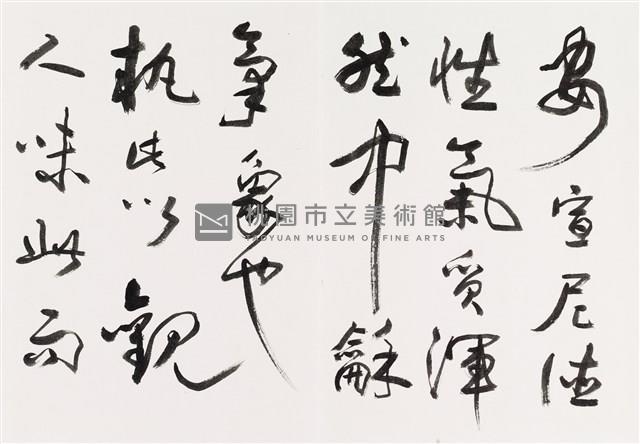 安宣尼德
性氣質渾
然中龢
氣象也
執此以觀
人味此而
桃園市立美術館
TAOYUAN MUSEUM OF FINE ARTS